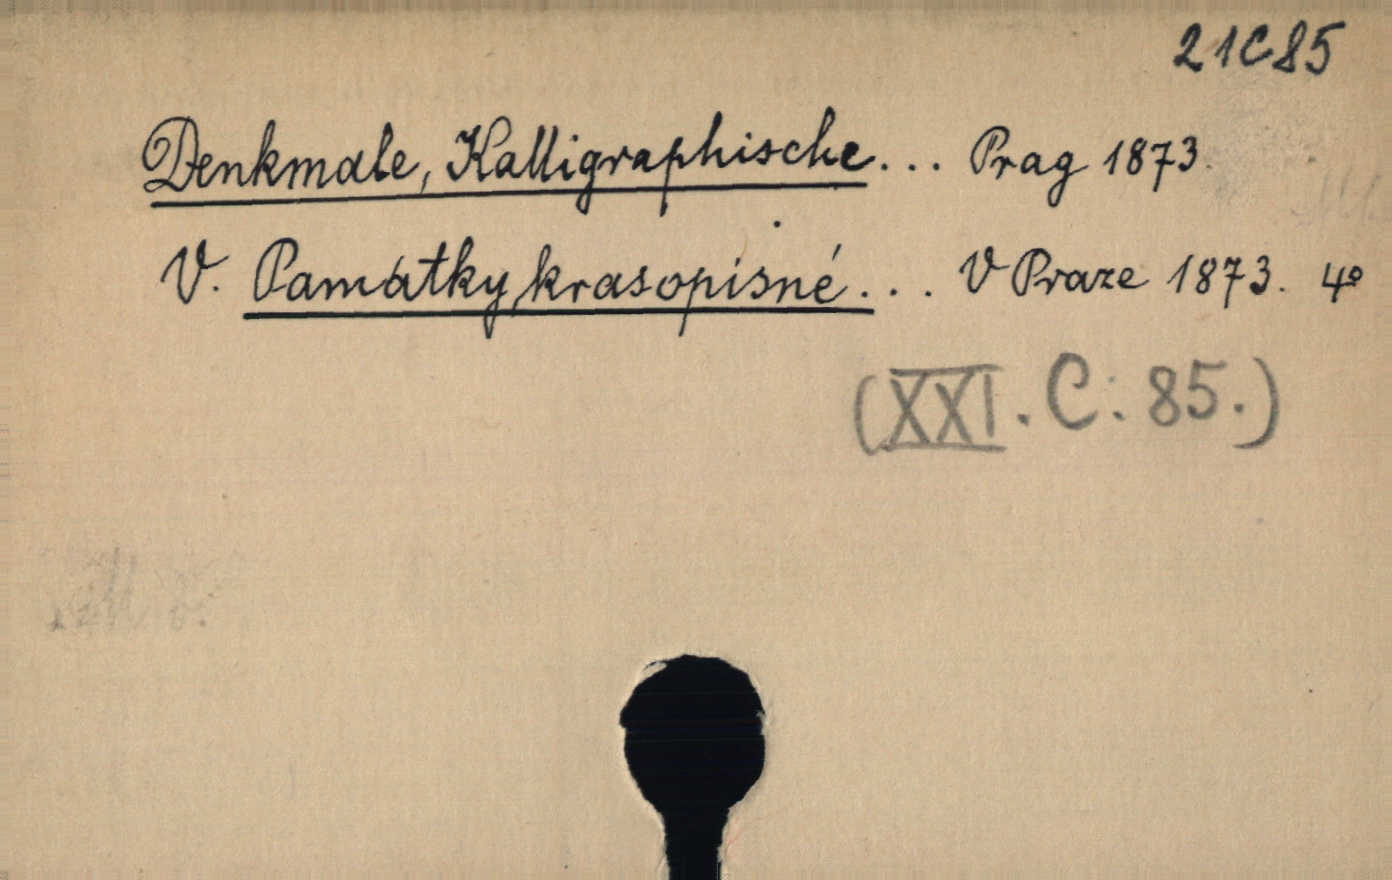 21C85
Denkmale, Kalligraphische... Prag 1873.
V. Památky, krasopisné... V Praze 1873. 4°
(XXI. C. 85.)